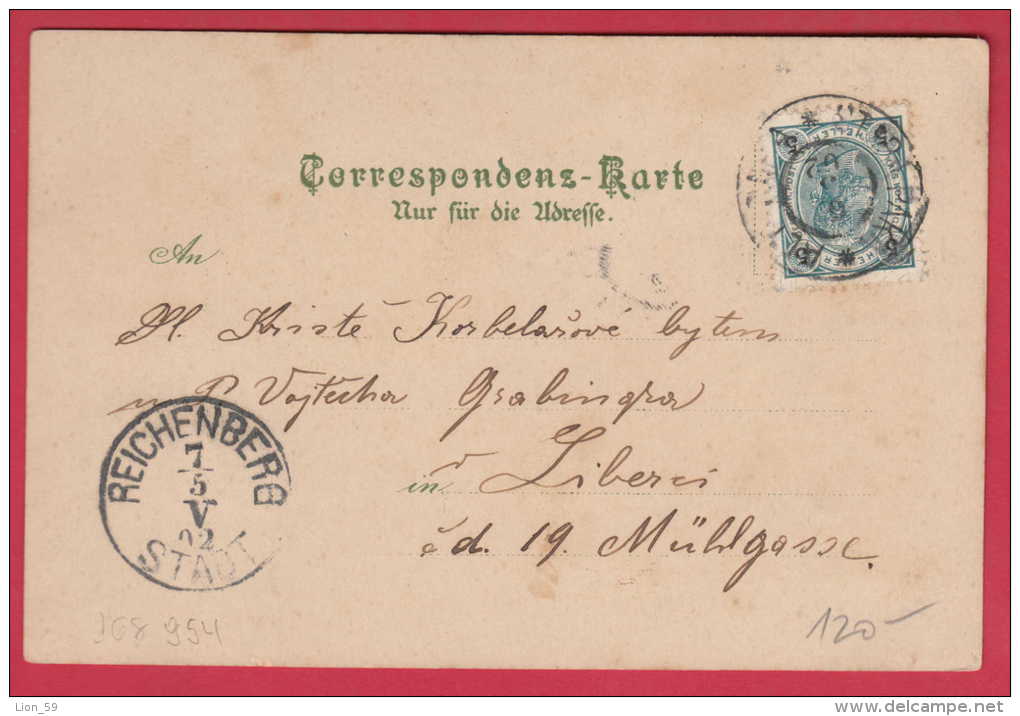 Correspondenz-Karte
Nur für die Adresse.
An
Sl. Kristě Korbelařové bytem
u P Vojtěcha Grabingra
v Liberci
čd. 19. Mühlgasse.
REICHENBERG
7
5
V
02
STADT
5 HELLER 5
5 HELLER 5
954
120-
Lion_59
www.delcampe.net